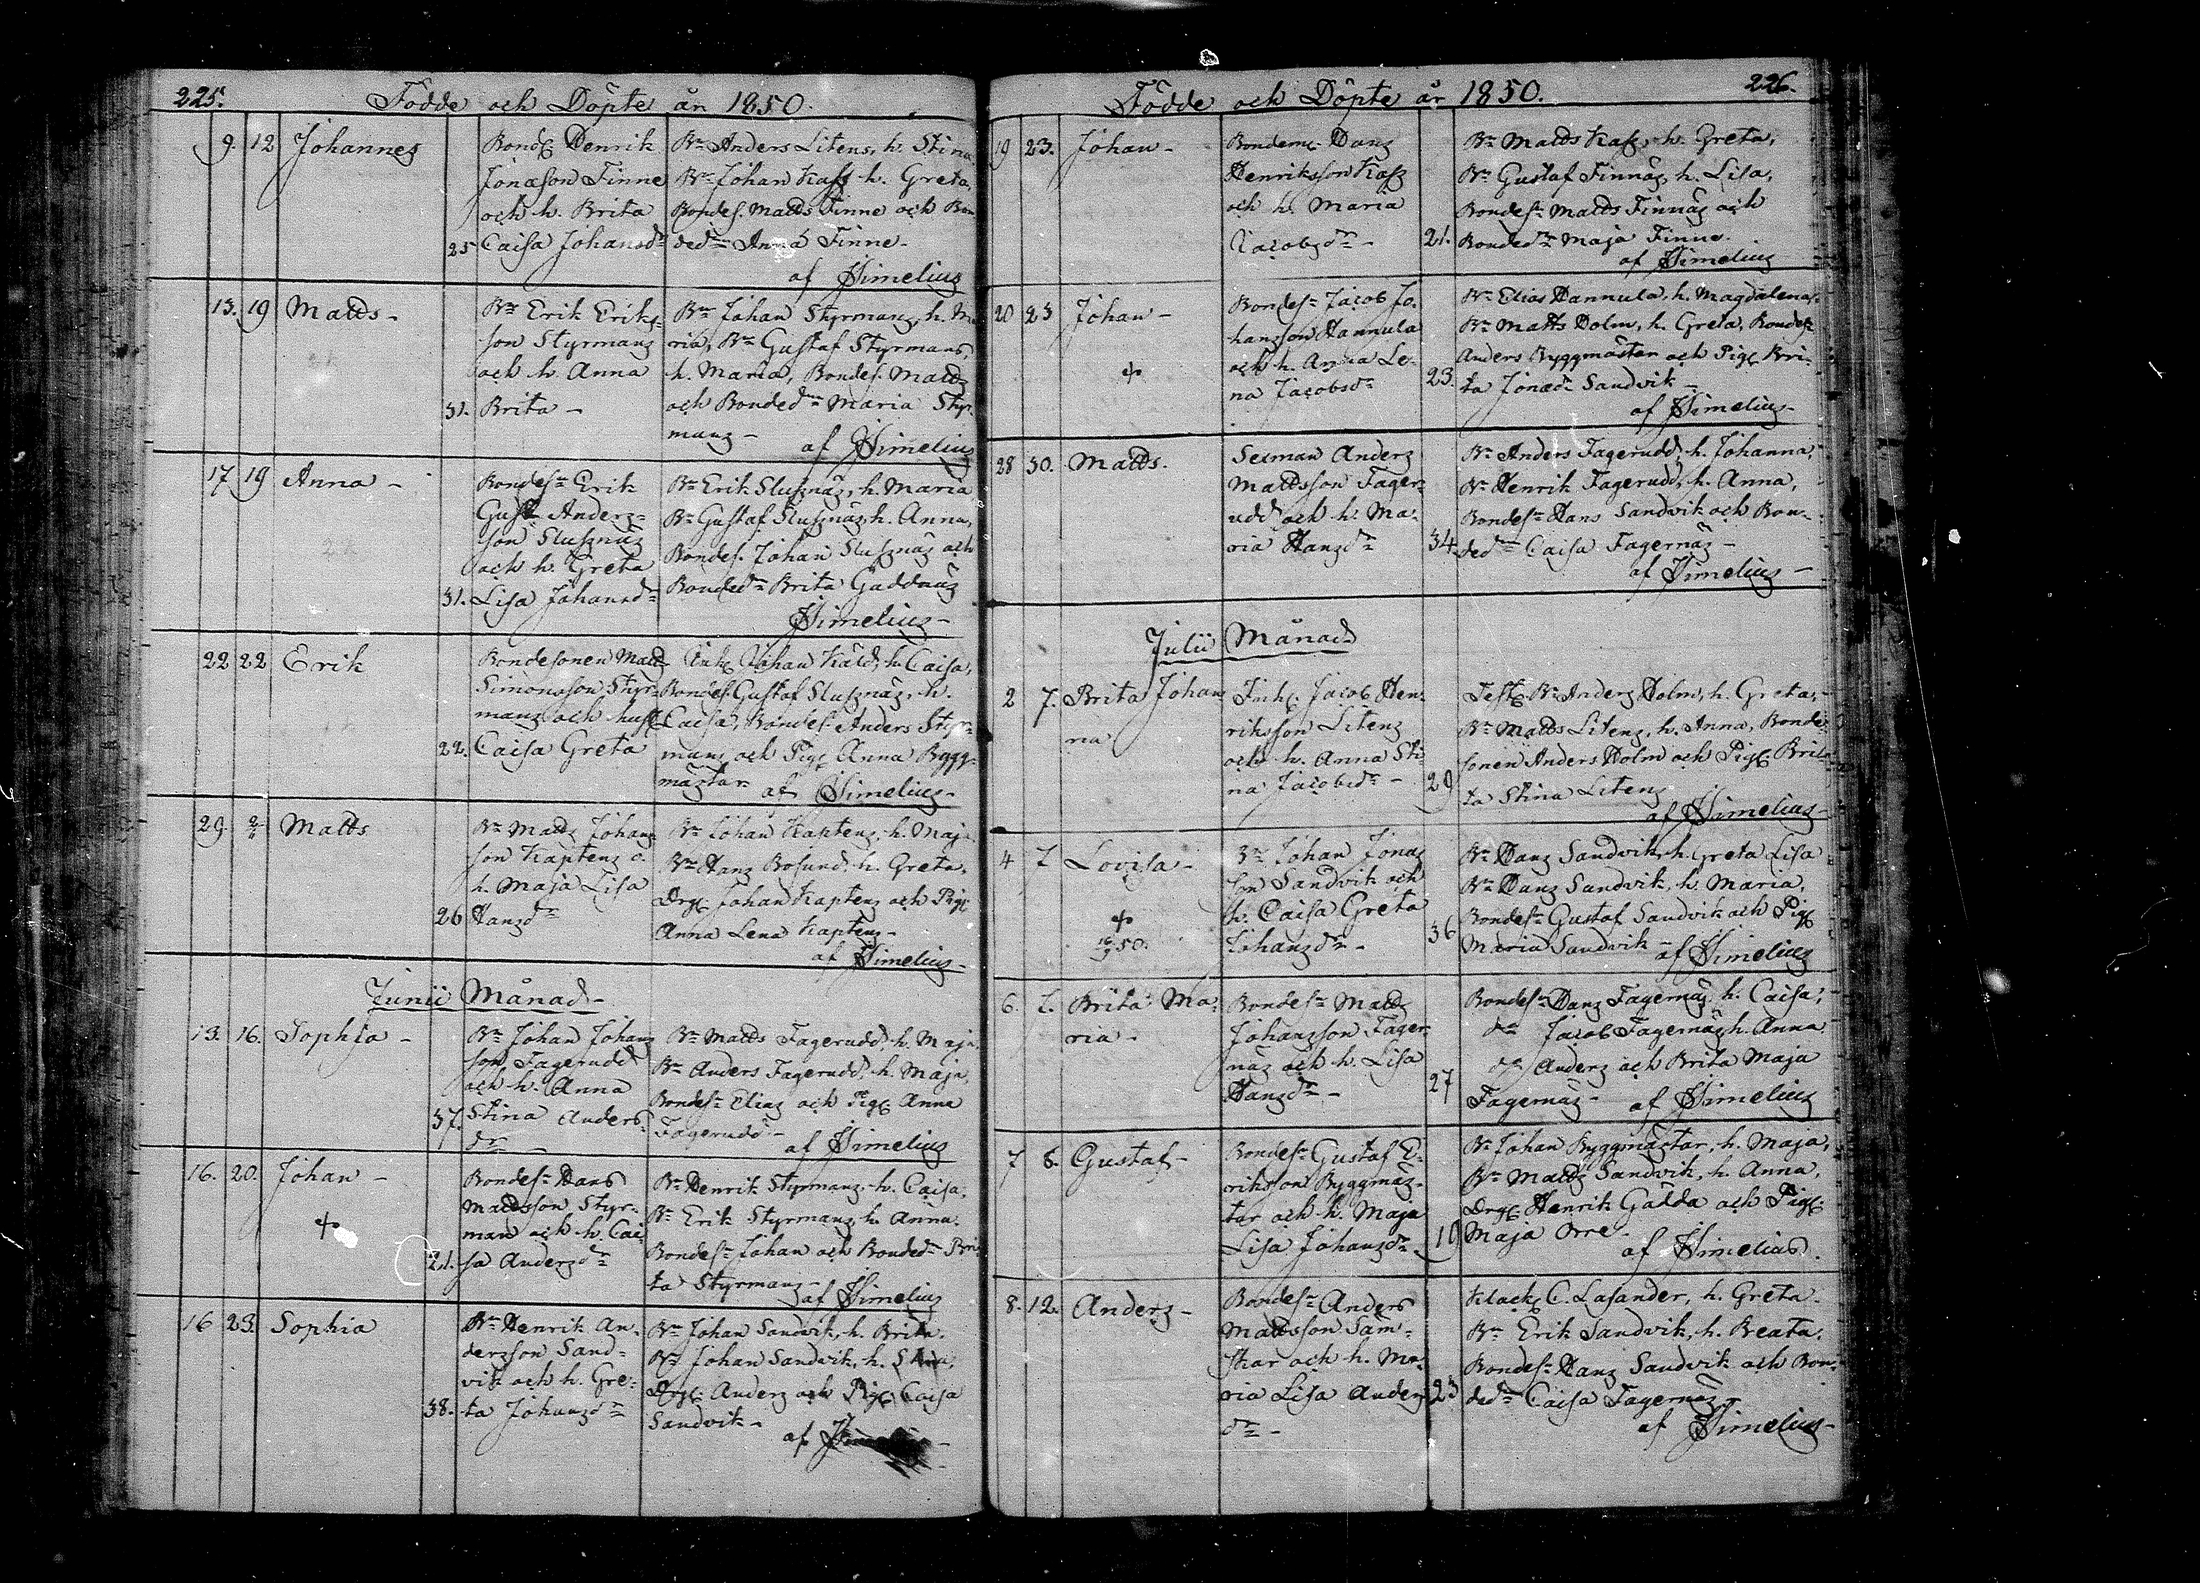 225.
Födde och Döpte år 1850.
9. 12 Johannes
Bond. Henrik
Jonasson Finne
och h. Brita
25 Caisa Johansdr
Bn Anders Litens, h. Stina
Bn Johan Kass h. Greta,
Bondes. Matts Finne och Bon
dedr Anna Finne-
af Simelius
13. 19 Matts-
Bn Erik Eriks-
son Styrmans
och h. Anna
31. Brita-
Bn Johan Styrmans, h. Ma
ria, Bn Gustaf Styrmans,
h. Maria, Bondes. Matts
och Bondedn Maria Styr-
mans- af Simelius
17 19 Anna-
Bondesn Erik
Gust. Anders-
son Slussnäs
och h. Greta
31. Lisa Johansdr
Bn Erik Slussnäs, h. Maria
Bn Gustaf Slussnäs, h. Anna,
Bondes. Johan Slussnäs och
Bondedn Brita Gäddnäs
Simelius-
22 22 Erik
Bondesonen Matts
Simonsson Styr-
mans och hust.
22. Caisa Greta
Johan Käld, h. Caisa,
Bondes. Gustaf Slussnäs, h.
Caisa, Bondes. Anders Styr-
mans och Pig. Anna Bygg-
mästar. af Simelius-
29. 2 Matts
Bn Matts Johans
son Kaptens o.
h. Maja Lisa
26 Hansdr
Bn Johan Kaptens, h. Maja
Bn Hans Bosund, h. Greta,
Drg. Johan Kaptens och Pig.
Anna Lena Kaptens-
af Simelius-
Junii Månad-
13. 16. Sophia-
Bn Johan Johans
son Fagerudd
och h. Anna
37. Stina Anders-
dr-
Bn Matts Fagerudd, h. Maja
Bn Anders Fagerudd, h. Maja
Bondesn Elias och Pig. Anna
Fagerudd-
af Simelius
16. 20. Johan-
Bondesn Hans
Mattsson Styr-
man och h. Cai-
21. sa Andersdr
Bn Henrik Styrmans, h. Caisa,
Bn Erik Styrmans h. Anna.
Bondesn Johan och Bondedn Bri
ta Styrmans-
af Simelius
16 23. Sophia
Bn Henrik An-
dersson Sand-
vik och h. Gre-
38. ta Johansdr
Bn Johan Sandvik, h. Brita.
Bn Johan Sandvik, h. Stina,
Drg. Anders och Pig. Caisa
Sandvik-
af
226.
Födde och Döpte år 1850.
19 23. Johan-
Bondem. Hans
Henriksson Kass
och h. Maria
21. Jacobsdr-
Bn Matts Kass, h. Greta,
Bn Gustaf Finnäs, h. Lisa,
Bondesn Matts Finnäs och
Bondedn Maja Finne.
af Simelius
20 23 Johan-
Bondesn Jacob Jo-
hansson Hannula
och h. Anna Le-
23. na Jacobsdr
Bn Elias Hannula, h. Magdalena
Bn Matts Holm, h. Greta, Bondes.
Anders Byggmästar och Pig. Bri-
ta Jonædr Sandvik-
af Simelius-
28 30. Matts.
Sexman Anders
Mattsson Fager-
udd och h. Ma-
34. ria Hansdr
Bn Anders Fagerudd, h. Johanna,
Bn Henrik Fagerudd, h. Anna,
Bondesn Hans Sandvik och Bon-
dedn Caisa Fagernäs-
af Simelius-
Julii Månad
2 7. Brita Johan
na
Inh. Jacob Hen-
riksson Litens
och h. Anna Sti
29 na Jacobsdr-
Test. Bn Anders Holm, h. Greta,
Bn Matts Litens, h. Anna, Bonde-
sonen Anders Holm och Pig. Bri-
ta Stina Litens
af Simelius-
4 7 Lovisa-
50.
Bn Johan Jonas
son Sandvik och
h. Caisa Greta
36 Johansdr-
Bn Hans Sandvik, h. Greta Lisa
Bn Hans Sandvik, h. Maria,
Bondesn Gustaf Sandvik och Pig.
Maria Sandvik- af Simelius
6. 7. Brita Ma-
ria-
Bondesn Matts
Johansson Fager-
näs och h. Lisa
27 Hansdr-
Bondesn Hans Fagernäs, h. Caisa,
dn Jacob Fagernäs, h. Anna
dn Anders och Brita Maja
Fagernäs- af Simelius
7 8. Gustaf-
Bondesn Gustaf E-
riksson Byggmäs-
tar och h. Maja
19 Lisa Johansdr-
Bn Johan Byggmästar, h. Maja,
Bn Matts Sandvik, h. Anna,
Drg. Henrik Gädda och Pig.
Maja Orre-
af Simelius.
8. 12. Anders-
Bondesn Anders
Mattsson Säm-
skar och h. Ma-
23 ria Lisa Anders
dr-
Klock. C. Lasander, h. Greta.
Bn Erik Sandvik, h. Beata.
Bondesn Hans Sandvik och Bon-
dedn Caisa Fagernäs-
af Simelius-